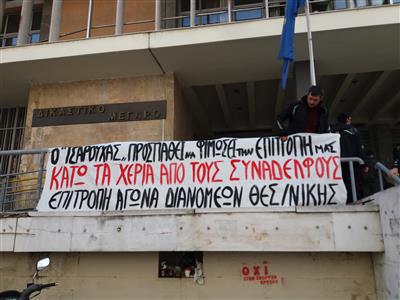 ΔΙΚΑΣΤΙΚΟ ΜΕΓΑΡΟ
Ο "ΤΣΑΡΟΥΧΑΣ" ΠΡΟΣΠΑΘΕΙ ΝΑ ΦΙΜΩΣΕΙ ΤΗΝ ΕΠΙΤΡΟΠΗ ΜΑΣ
ΚΑΤΩ ΤΑ ΧΕΡΙΑ ΑΠΟ ΤΟΥΣ ΣΥΝΑΔΕΛΦΟΥΣ
ΕΠΙΤΡΟΠΗ ΑΓΩΝΑ ΔΙΑΝΟΜΕΩΝ ΘΕΣ/ΝΙΚΗΣ
ΟΧΙ